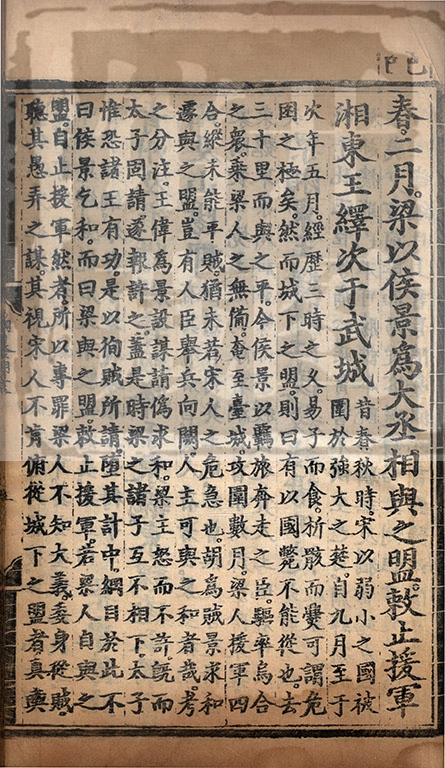 春二月梁以侯景爲大丞相與之盟敕止援軍
湘東王繹次于武城
昔春秋時宋以弱小之國被
圍於強大之楚自九月至于
次年五月經歷三時之久易子而食析骸而爨可謂危
困之極矣然而城下之盟則曰有以國斃不能從也去
三十里而與之平今侯景以羈旅奔走之臣驅率烏合
之衆乘梁人之無備奄至臺城攻圍數月梁人援軍四
合縱未能平賊猶未若宋人之危急也胡爲賊景求和
遽與之盟豈有人臣舉兵向闕人主可與之和者哉考
之分注王偉爲景設謀請僞求和梁主怒而不許旣而
太子固請遂報許之蓋是時梁之諸子互不相下太子
惟恐諸王有功是以徇賊所請墮其計中綱目於此不
曰侯景乞和而曰梁與之盟敕止援軍若梁人自與之
盟自止援軍然者所以專罪梁人不知大義委身從賊
聽其愚弄之謀其視宋人不肯俯從城下之盟者真